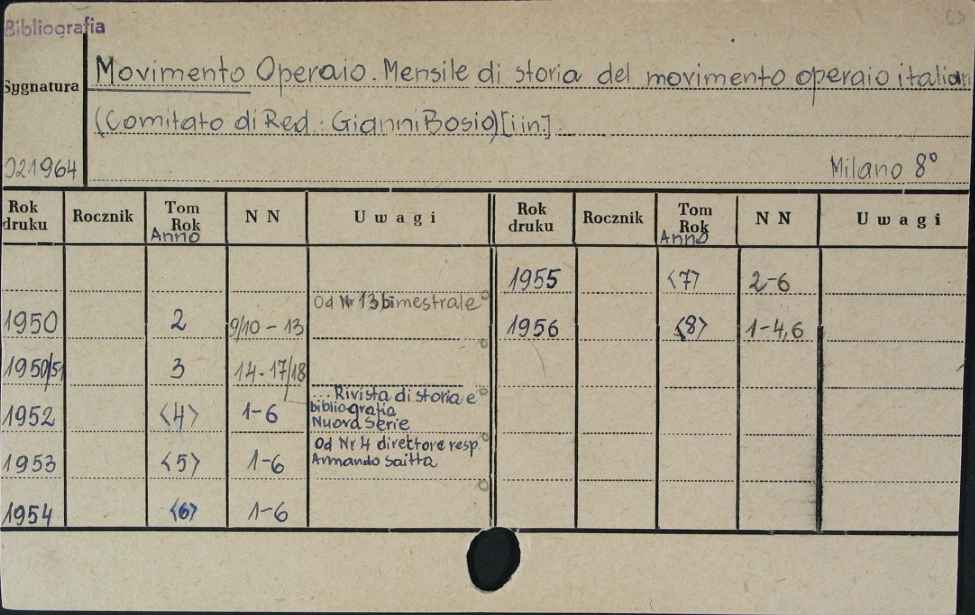 Bibliografia
Sygnatura
Movimento Operaio. Mensile di storia del movimento operaio italian
(Comitato di Red.: Gianni Bosio) [i in.]
021964
Milano 8°
Rok druku Rocznik Tom Rok Anno N N Uwagi Rok druku Rocznik Tom Rok Anno N N Uwagi
1955 <7> 2-6
Od Nr 13 bimestrale
1950 2 9/10 - 13
1956 <8> 1-4,6
1950/51 3 14-17/18
1952 <4> 1-6
... Rivista di storia e
bibliografia
Nuova Serie
1953 <5> 1-6
Od Nr 4 direttore resp.
Armando Saitta
1954 <6> 1-6